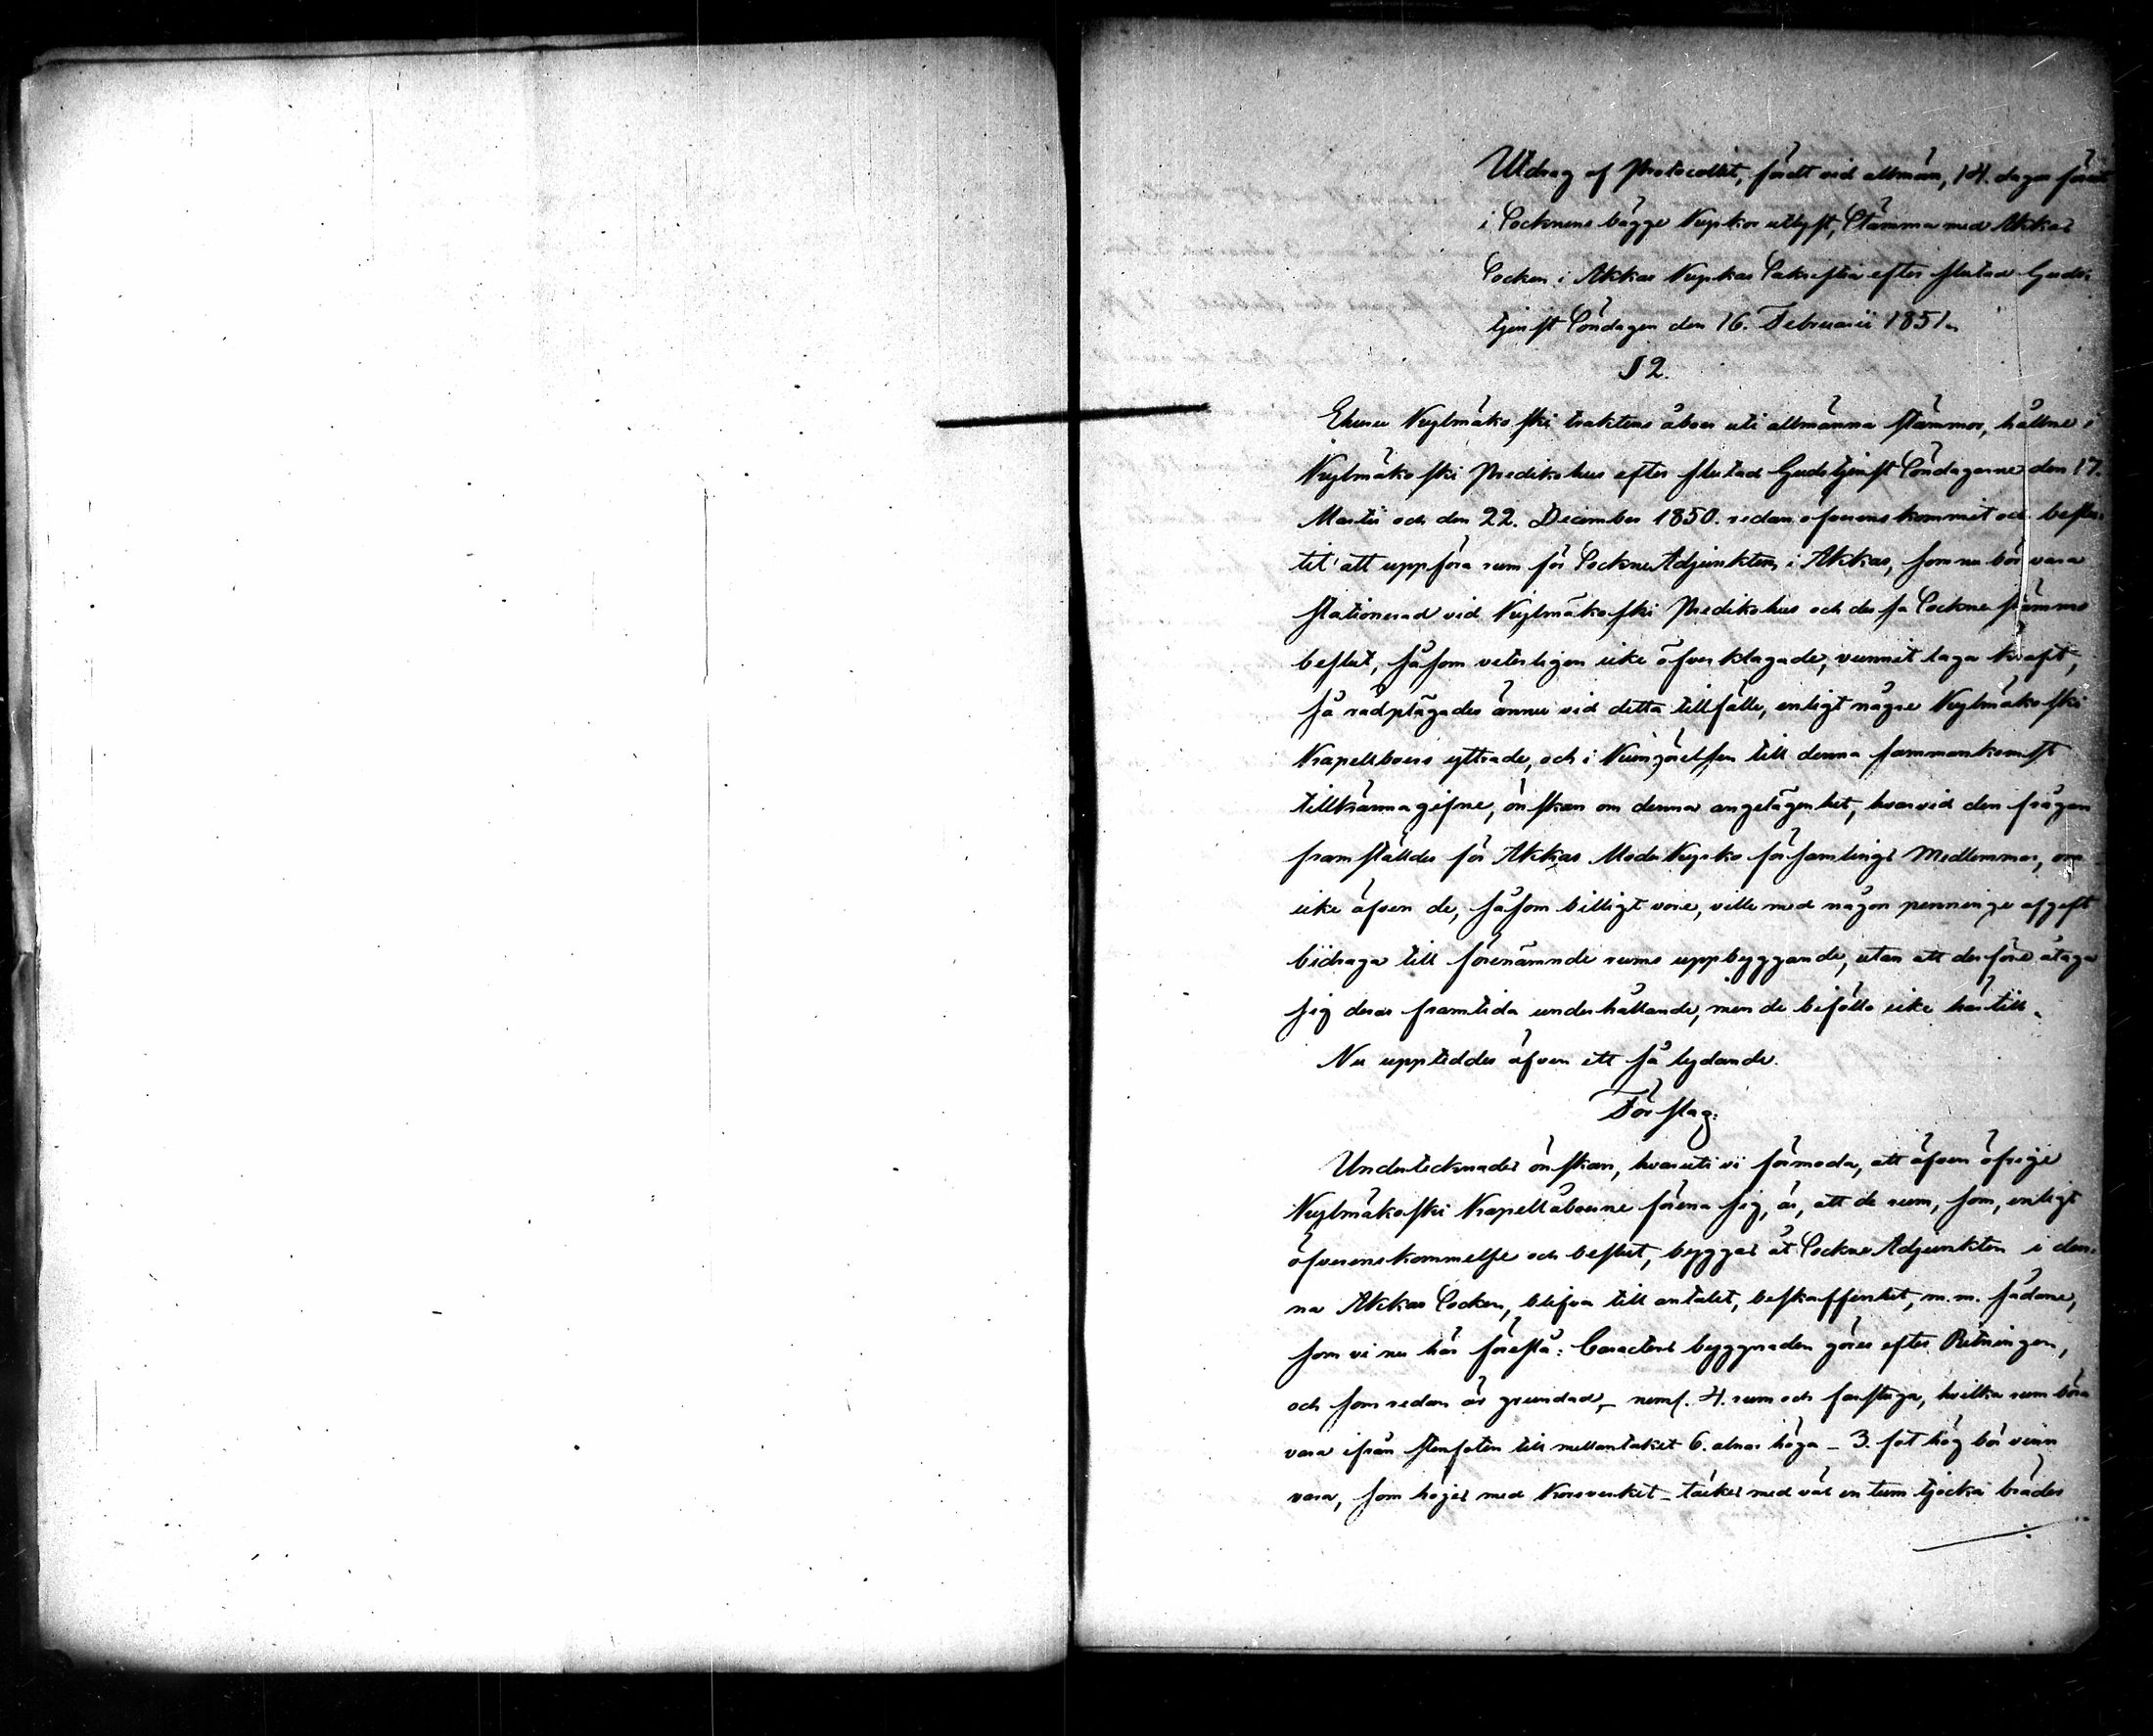 Utdrag af Protocollet, fördt vid allmän, 14. dagar förut
i Socknens bägge Kyrkor utlyst, Stämma med Akkas
Socken i Akkas Kyrkas Sakristia efter slutad Guds-
tjenst Söndagen den 16. Februarii 1851.
§ 2.
Ehuru Kylmäkoski traktens åboer uti allmänna stämmor, hållne i
Kylmäkoski Predikohus efter slutad Gudstjenst Söndagarne den 17.
Martii och den 22. December 1850. redan öfverenskommit och beslu-
tit att uppföra rum för SockneAdjunkten i Akkas, som nu bör vara
stationerad vid Kylmäkoski Predikohus och dessa Sockne stämmo
beslut, såsom veterligen icke öfverklagade, vunnit laga kraft,
så rådplägades ännu vid detta tillfälle, enligt någre Kylmäkoski
Kapellboers yttrade, och i Kungörelsen till denna sammankomst
tillkännagifne, önskan om denna angelägenhet, hvarvid den frågan
framställdes för Akkas ModerKyrko församlings Medlemmar, om
icke äfven de, såsom billigt vore, ville med någon penninge afgift
bidraga till förenämnde rums uppbyggande, utan att derföre åtaga
sig deras framtida underhållande, men de biföllo icke härtill.
Nu uppteddes äfven ett så lydande.
Förslag:
Undertecknades önskan, hvaruti vi förmoda, att äfven öfrige
Kylmäkoski Kapellåboerne förena sig, är, att de rum, som, enligt
öfverenskommelse och beslut, byggas åt SockneAdjunkten i den-
na Akkas Socken, blifva till antalet, beskaffenhet, m. m. sådane,
som vi nu här föreslå: Caracters byggnaden göres efter Ritningen,
och som redan är grundad, – neml. 4. rum och farstuga, hvilka rum böra
vara ifrån stenfoten till mellantaket 6. alnar höga – 3. fot hög bör vinn
vara, som höjes med Korsverket – täckes med väl en tum tjocka bräder